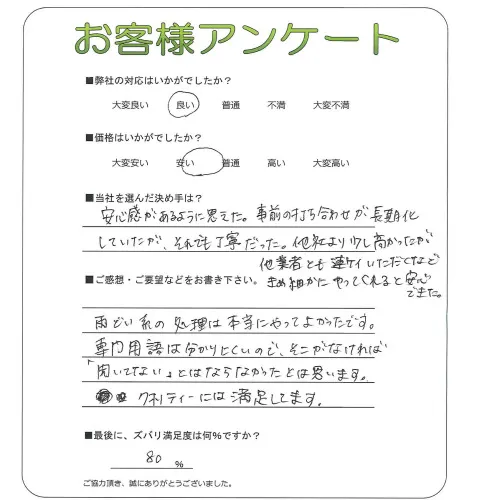 お客様アンケート
■弊社の対応はいかがでしたか？
大変良い 良い 普通 不満 大変不満
■価格はいかがでしたか？
大変安い 安い 普通 高い 大変高い
■当社を選んだ決め手は？
安心感があるように思えた。事前の打ち合わせが長期化
していたが、それでも丁寧だった。他社より少し高かったが
他業者とも連ケイいただくなど
きめ細かにやってくれると安心
できた。
■ご感想・ご要望などをお書き下さい。
雨どい系の処理は本当にやってよかったです。
専門用語は分かりにくいので、そこがなければ
「聞いてない」とはならなかったとは思います。
クオリティーには満足してます。
■最後に、ズバリ満足度は何%ですか？
80 %
ご協力頂き、誠にありがとうございました。